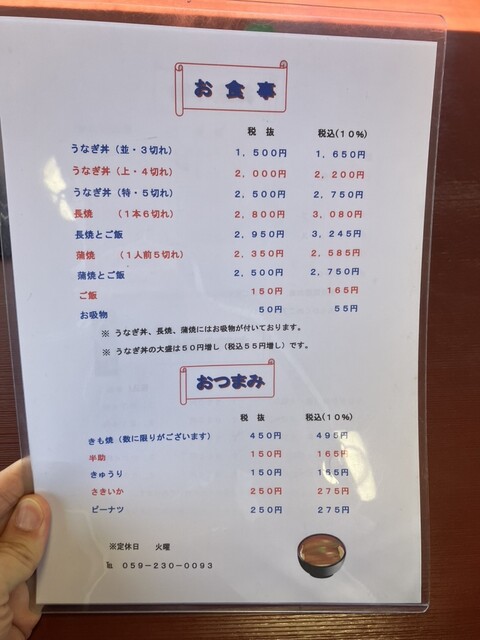 お食事
税抜 税込(10%)
うなぎ丼（並・3切れ） 1,500円 1,650円
うなぎ丼（上・4切れ） 2,000円 2,200円
うなぎ丼（特・5切れ） 2,500円 2,750円
長焼 （1本6切れ） 2,800円 3,080円
長焼とご飯 2,950円 3,245円
蒲焼 （1人前5切れ） 2,350円 2,585円
蒲焼とご飯 2,500円 2,750円
ご飯 150円 165円
お吸物 50円 55円
※ うなぎ丼、長焼、蒲焼にはお吸物が付いております。
※ うなぎ丼の大盛は50円増し（税込55円増し）です。
おつまみ
税抜 税込(10%)
きも焼（数に限りがございます） 450円 495円
半助 150円 165円
きゅうり 150円 165円
さきいか 250円 275円
ピーナツ 250円 275円
※定休日 火曜
℡ 059-230-0093